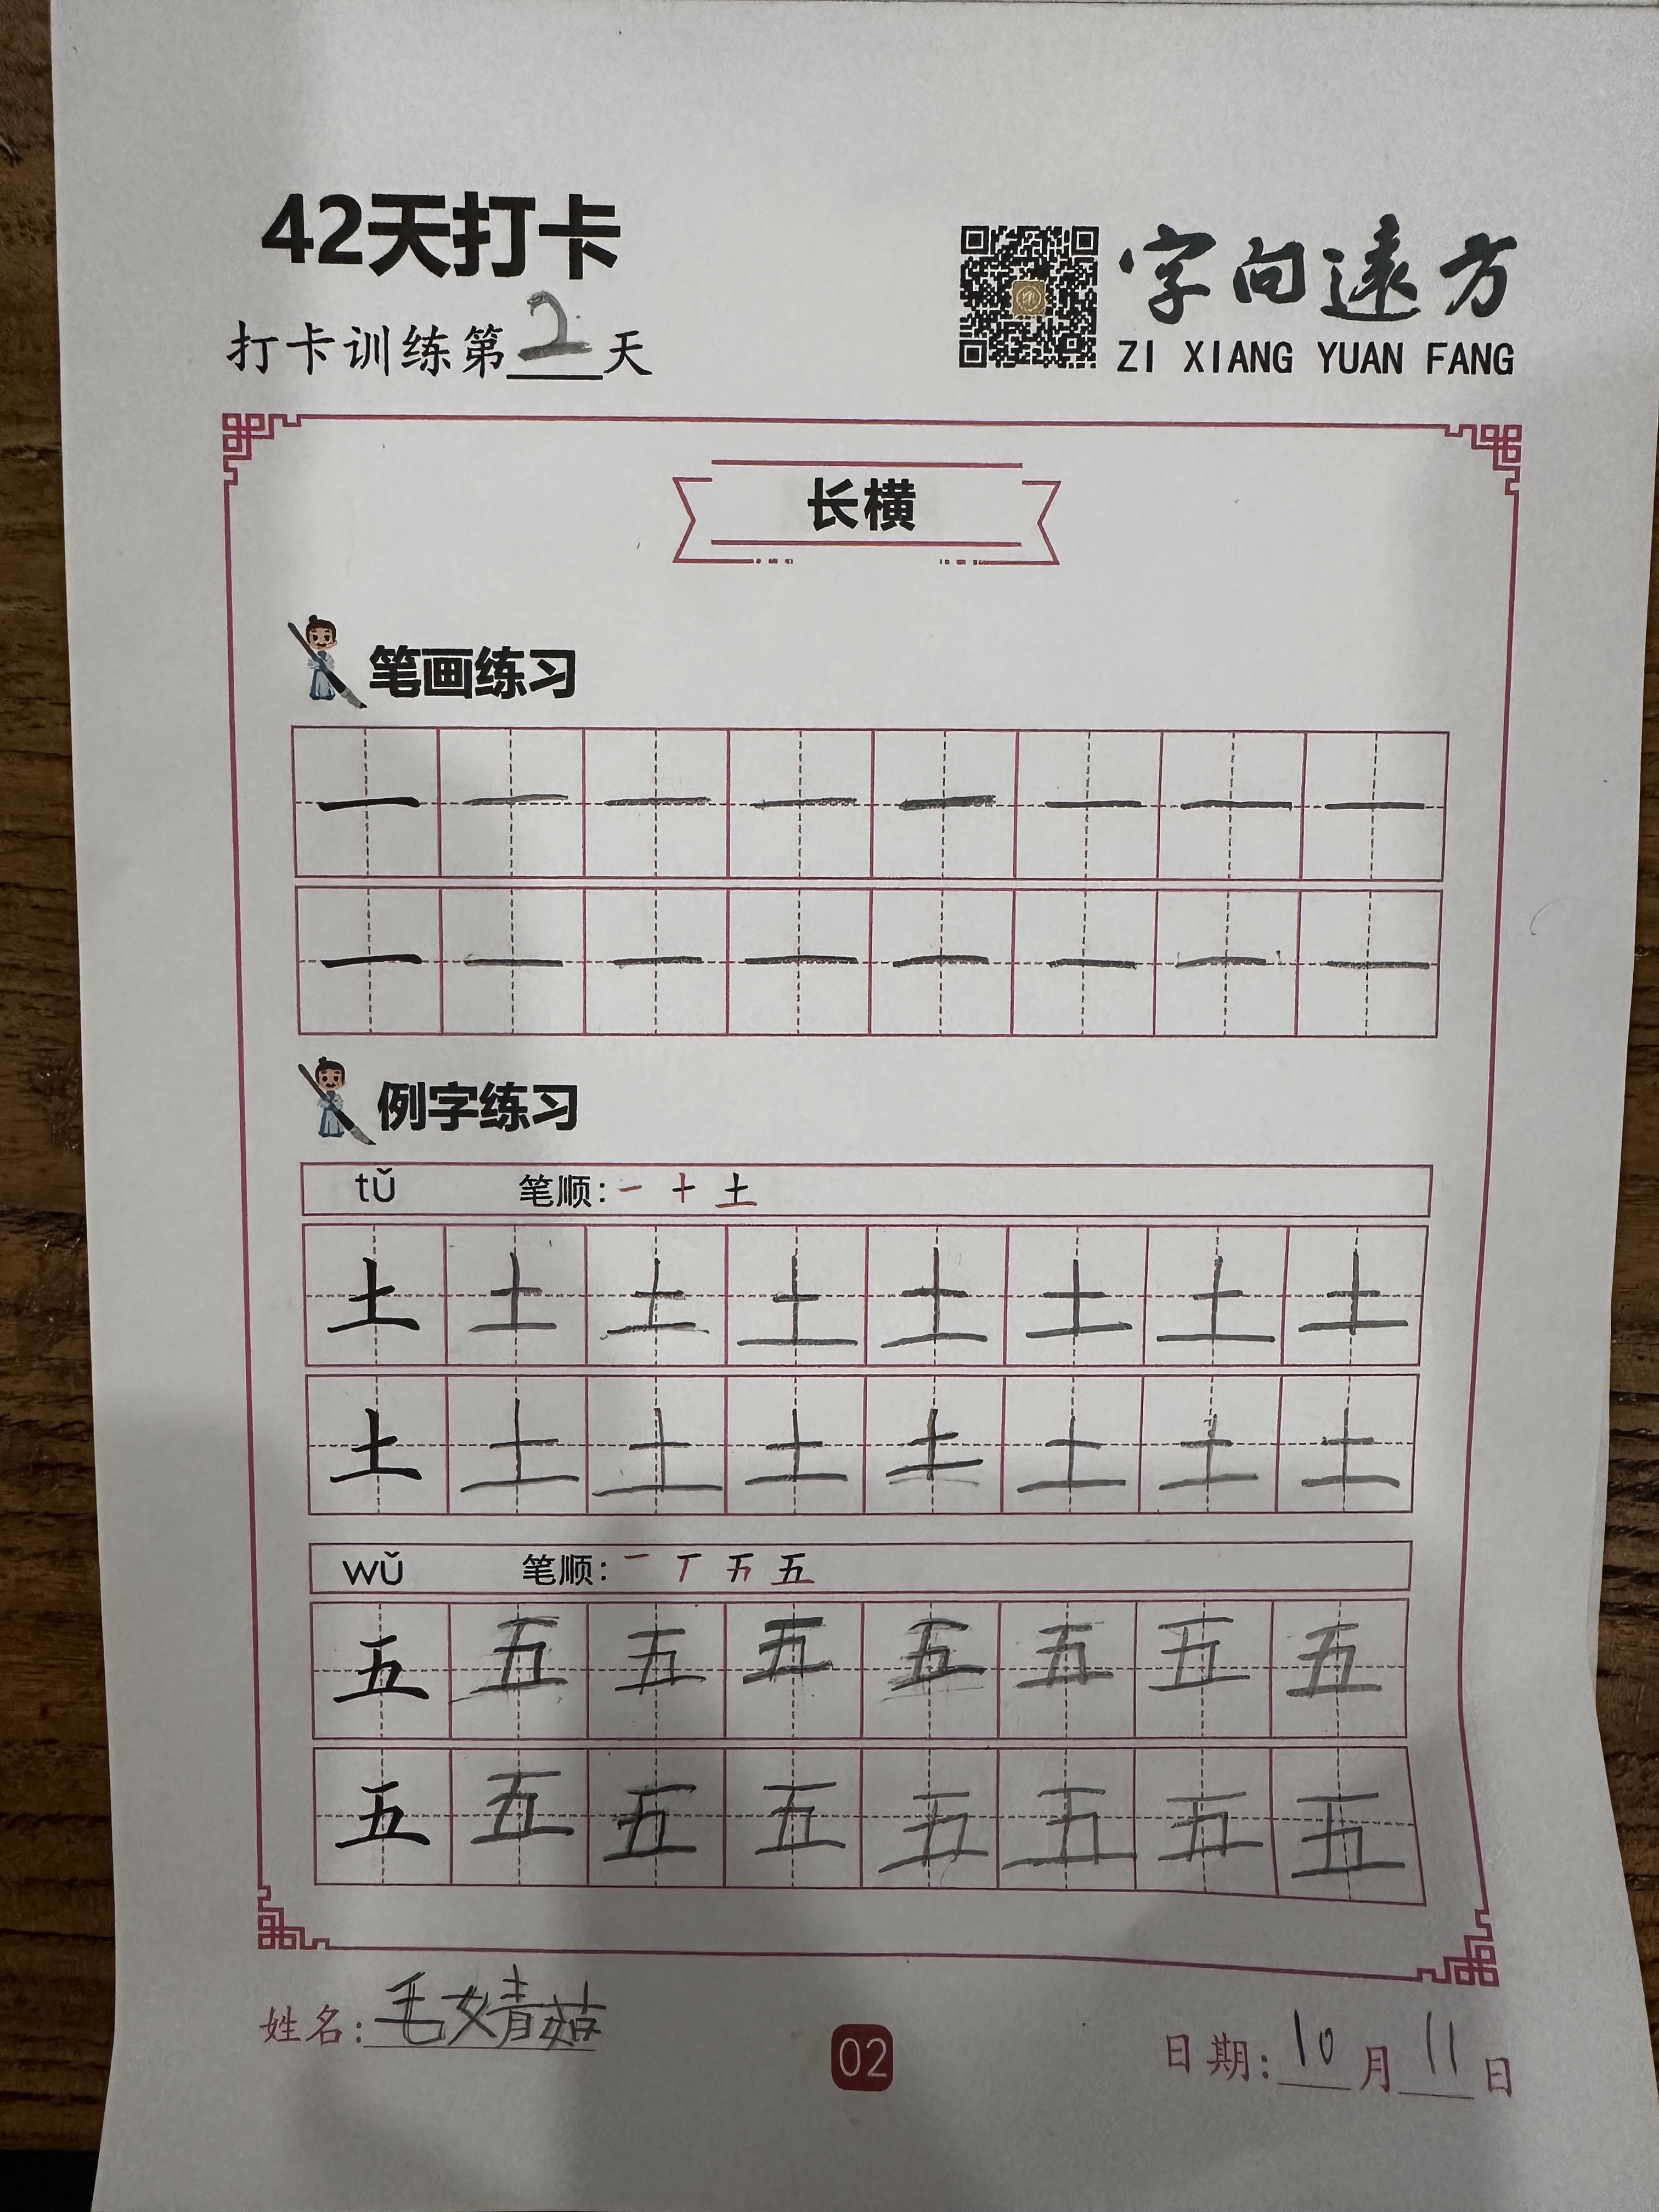 42天打卡
打卡训练第2天
字向遠方
ZI XIANG YUAN FANG
长横
笔画练习
一 一 一 一 一 一 一 一
一 一 一 一 一 一 一 一
例字练习
tǔ 笔顺: 一 十 土
土 土 土 土 土 土 土 土
土 土 土 土 土 土 土 土
wǔ 笔顺: 一 丅 五
五 五 五 五 五 五 五 五
五 五 五 五 五 五 五 五
姓名: 毛婧
02
日期: 10月11日